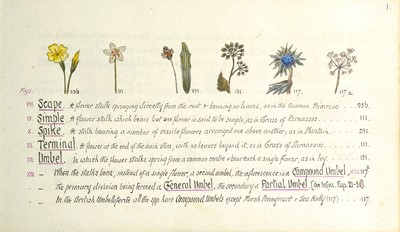 1.
Figs. 236. 111. 291. 131. 117. 117a.
VIII. Scape. A flower stalk springing directly from the root & bearing no leaves, as in the Common Primrose. . . . 236.
IX. Simple. A flower stalk which bears but one flower is said to be simple, as in Grass of Parnassus. . . . 111.
X. Spike. A stalk bearing a number of sessile flowers arranged one above another, as in Plantain. . . . 291.
XI. Terminal. A flower at the end of the main stem, with no leaves beyond it, as in Grass of Parnassus. . . . 111.
XII. Umbel. In which the flower stalks spring from a common centre & bear each a single flower, as in Ivy. . . . 131.
XIII. — When the stalks bear, instead of a single flower, a second umbel, the inflorescence is a Compound Umbel,
— the primary division being termed a General Umbel, the secondary a Partial Umbel.
— In the British Umbelliferæ all the spp. have Compound Umbels except Marsh Pennywort & Sea Holly (117) . . . 117.